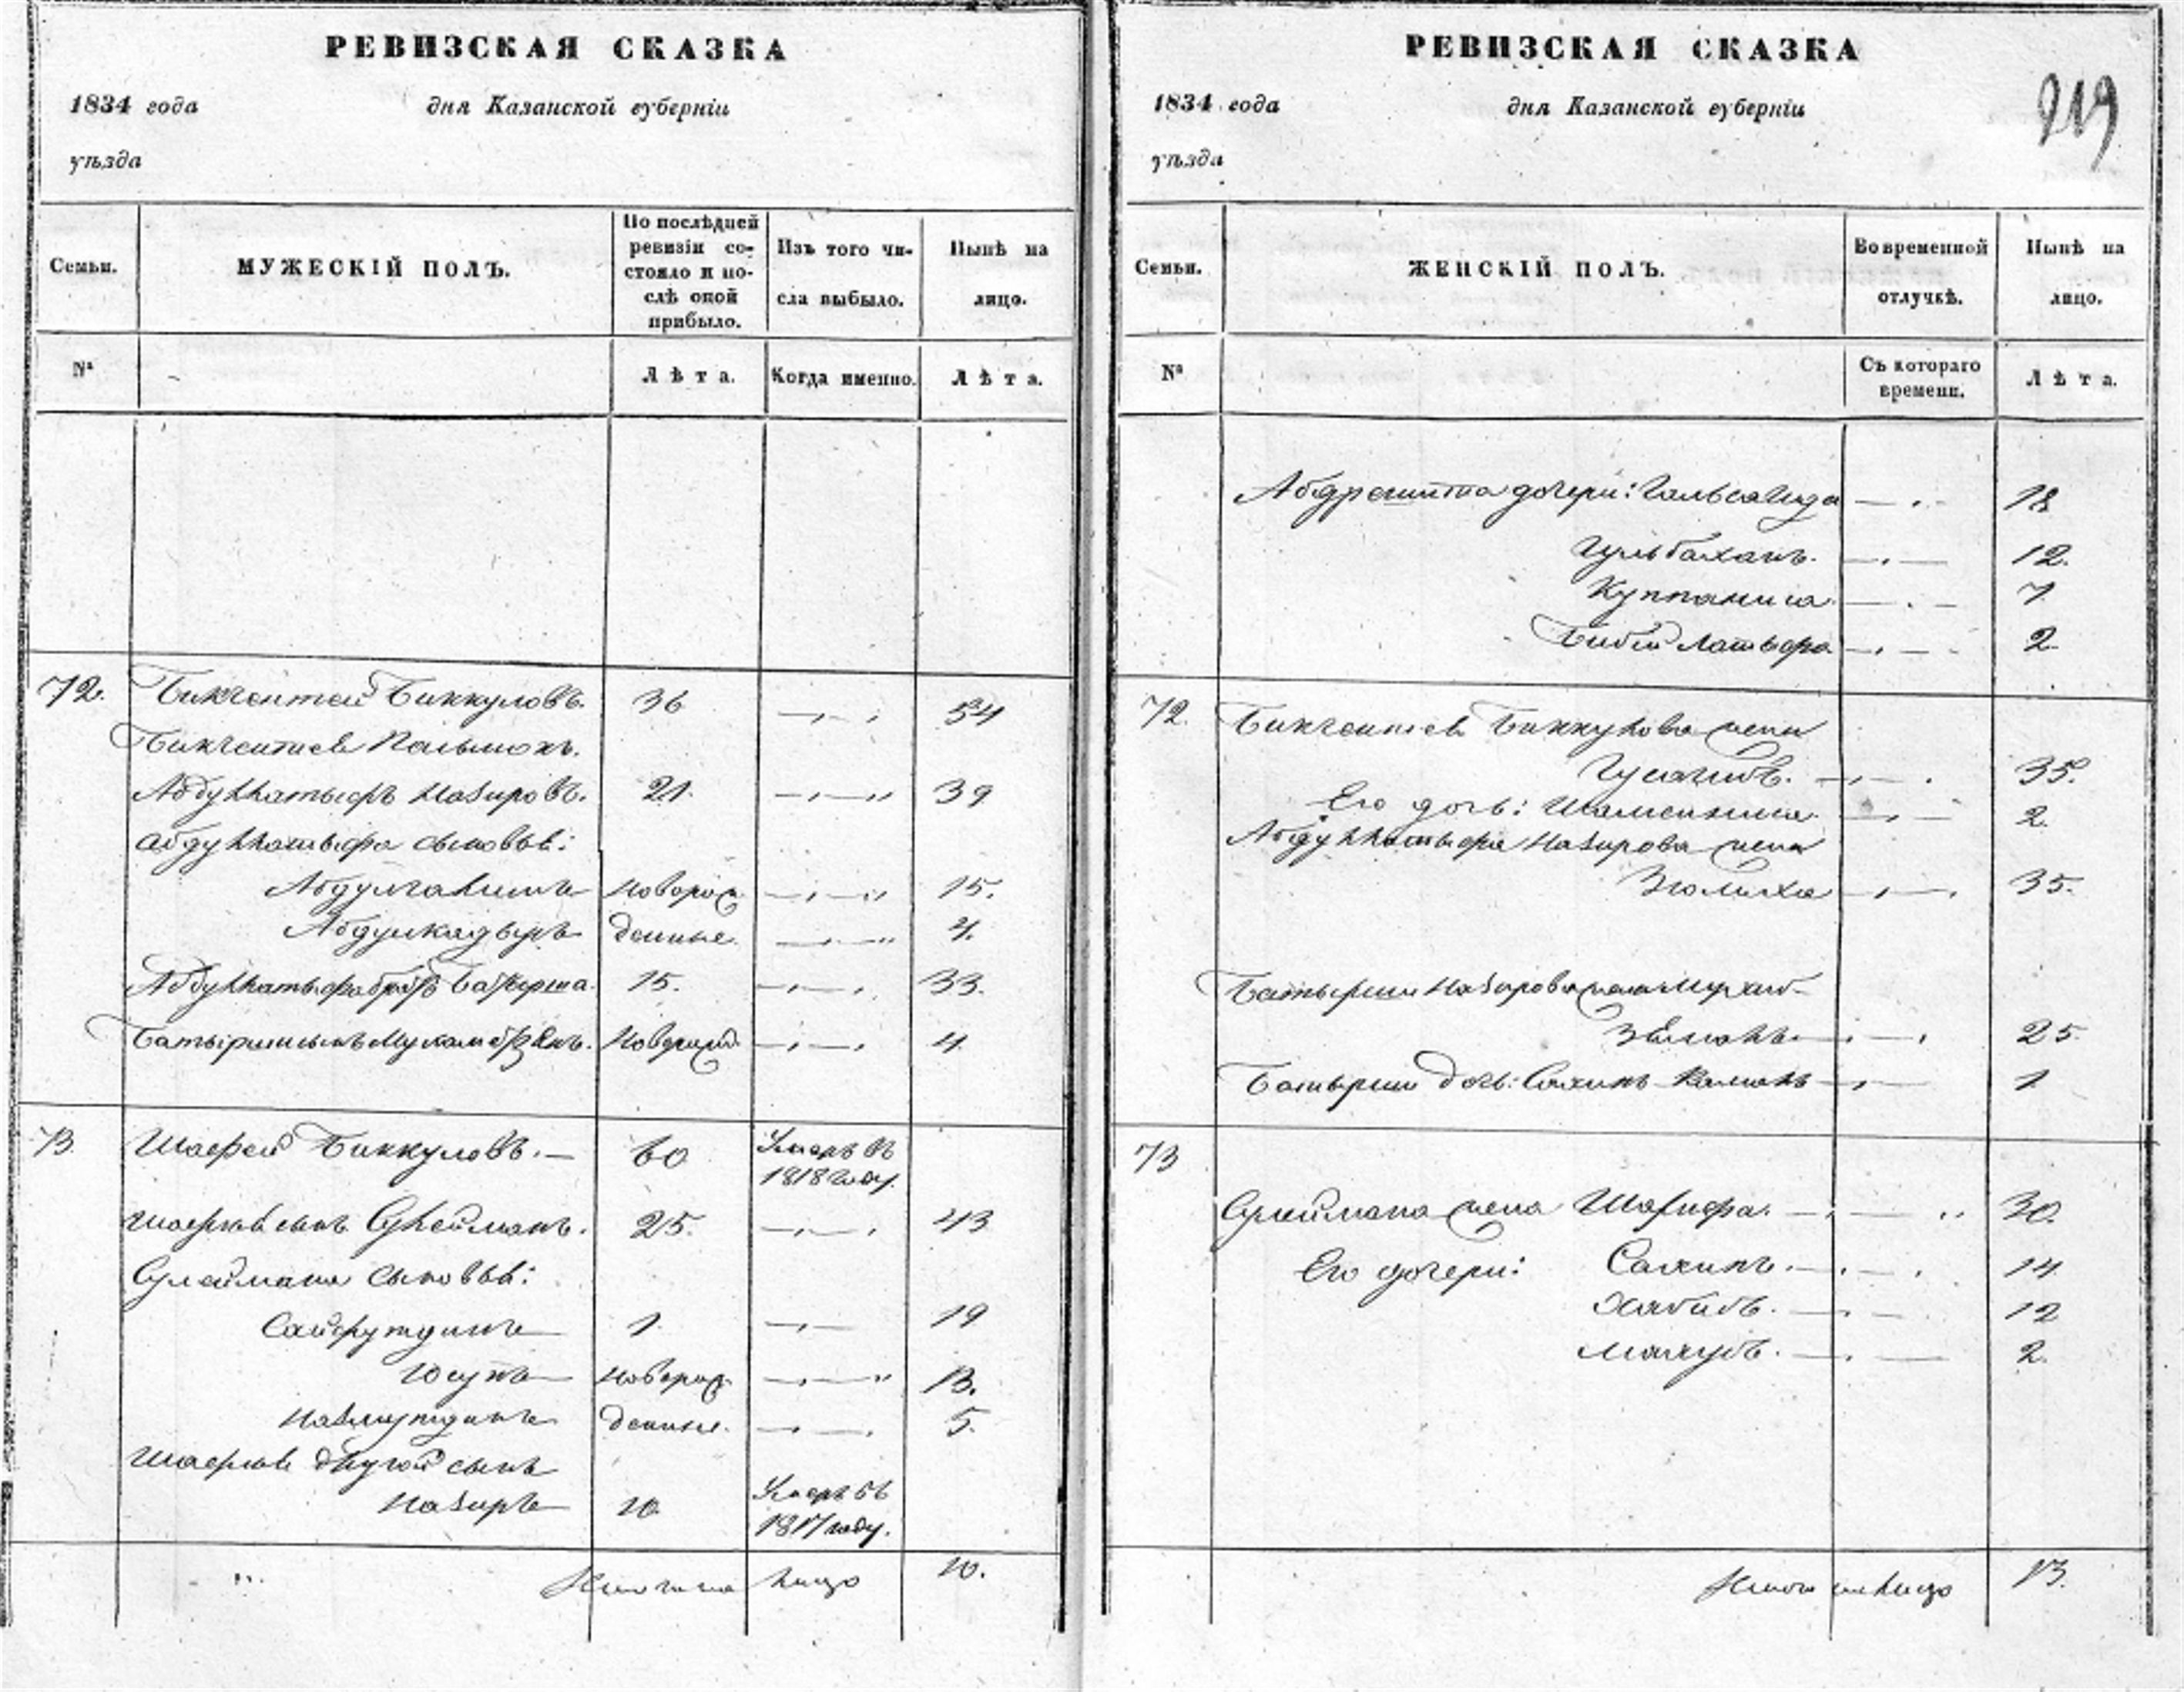 РЕВИЗСКАЯ СКАЗКА
1834 года дня Казанской губерніи
уѣзда
Семьи. МУЖЕСКІЙ ПОЛЪ. По послѣдней ревизіи состояло и послѣ оной прибыло. Изъ того числа выбыло. Нынѣ на лицо.
№ Лѣта. Когда именно. Лѣта.
72. Бикчентей Биккуловъ. 36 54
Бикчентеев
Абдуллатыфъ Назировъ. 21. 39
Абдуллатыфа сыновья:
Абдулгалимъ новорож 15.
Абдулкадыръ денные. 4.
Абдуллатыфа братъ Батырша. 15. 33.
Батырши сынъ новорожд. 4.
73. Шафей Биккуловъ. 60 Умеръ въ
1818 году.
Шафея сынъ Сулейманъ. 25. 43
Сулеймана сыновья:
Сайфутдинъ 1. 19
Юсупъ новорож 13.
Назмутдинъ денные. 5.
Шафея другой сынъ
Назиръ 10. Умеръ въ
1817 году.
Итого на лицо 10.
РЕВИЗСКАЯ СКАЗКА
219
1834 года дня Казанской губерніи
уѣзда
Семьи. ЖЕНСКІЙ ПОЛЪ. Во временной отлучкѣ. Нынѣ на лицо.
№ Съ котораго времени. Лѣта.
Абдрешита дочери: 18
Гульбаханъ. 12.
7
Биби Латыфа 2
72. Бикчентея Биккулова жена
35.
Его дочь: 2.
Абдуллатыфа Назирова жена
Зюлиха 35.
Батырши Назирова жена
25.
Батырши дочь: 1
73
Сулеймана жена Шарифа. 30.
Его дочери: 14
Хабибъ. 12
2.
Итого на лицо 13.